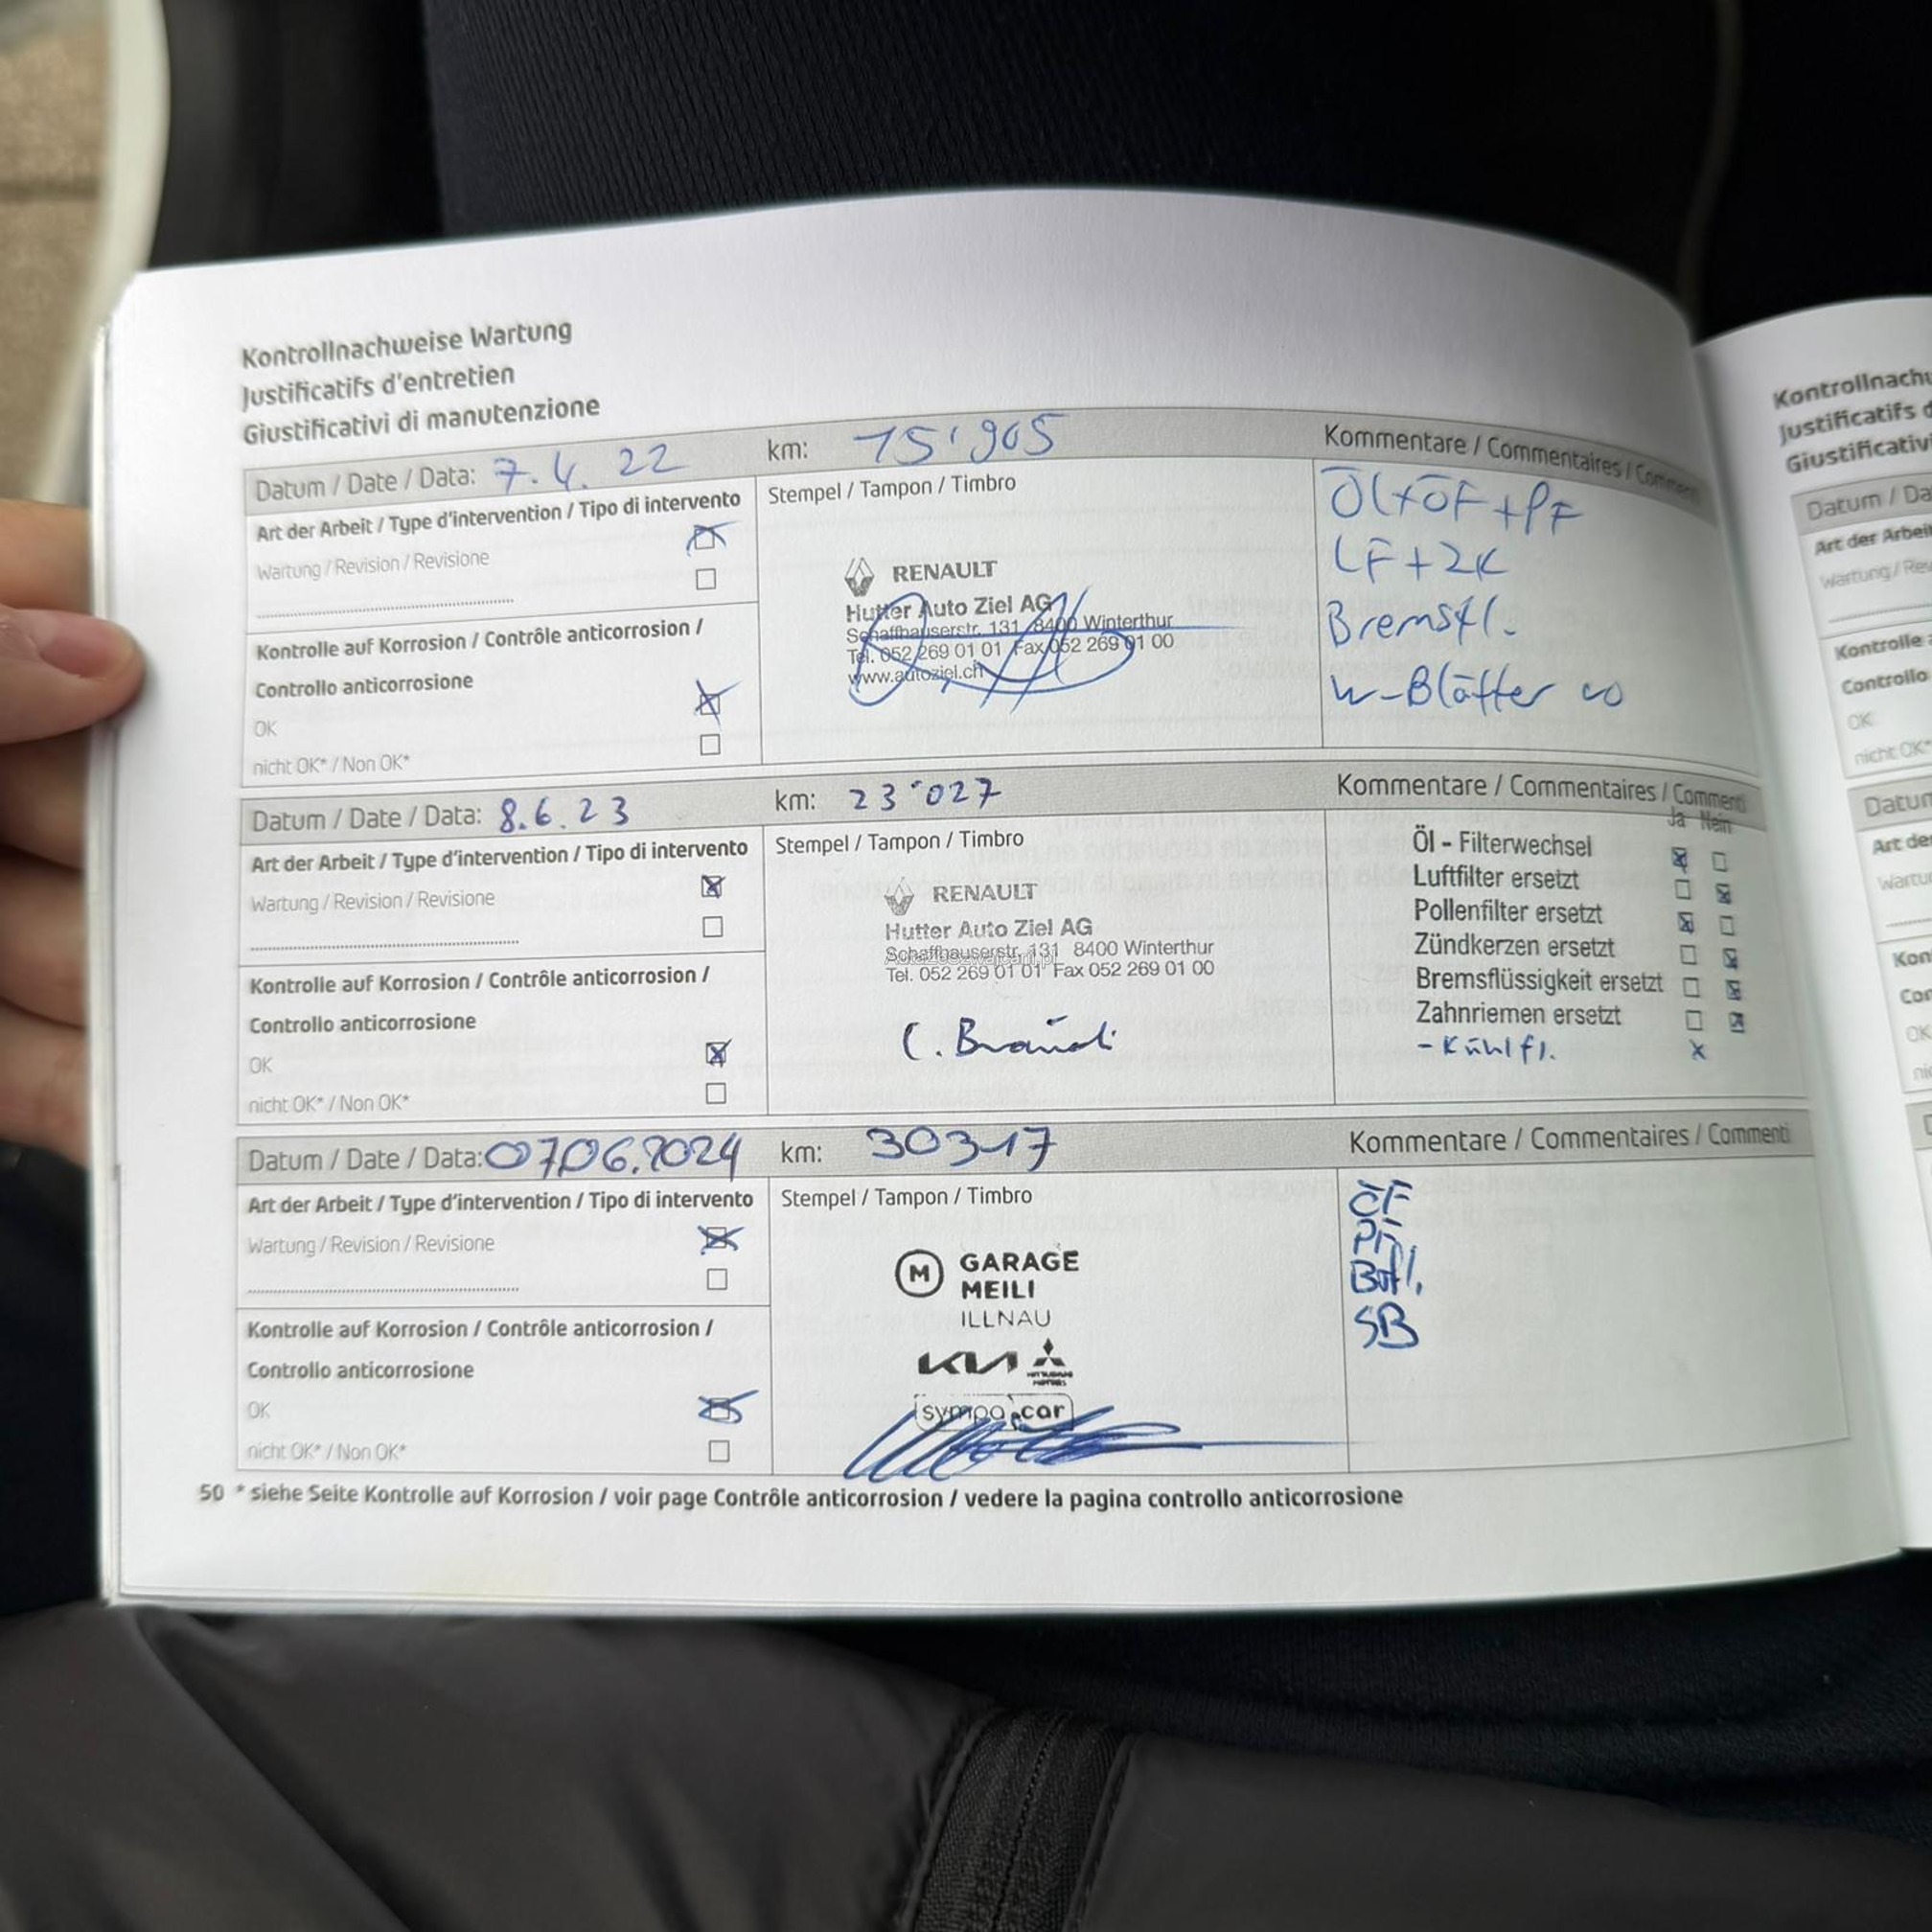 Kontrollnachweise Wartung
Justificatifs d'entretien
Giustificativi di manutenzione
Datum / Date / Data: 7.4.22 km: 15'905 Kommentare / Commentaires / Commenti
Art der Arbeit / Type d'intervention / Tipo di intervento
Wartung / Revision / Revisione
Kontrolle auf Korrosion / Contrôle anticorrosion /
Controllo anticorrosione
OK
nicht OK* / Non OK*
Stempel / Tampon / Timbro
RENAULT
Hutter Auto Ziel AG
Schaffhauserstr. 131 8400 Winterthur
Tel. 052 269 01 01 Fax 052 269 01 00
www.autoziel.ch
Öl+ÖF+PF
LF+ZK
Bremsfl.
W-Blätter vo
Datum / Date / Data: 8.6.23 km: 23'027 Kommentare / Commentaires / Commenti
Art der Arbeit / Type d'intervention / Tipo di intervento
Wartung / Revision / Revisione
Kontrolle auf Korrosion / Contrôle anticorrosion /
Controllo anticorrosione
OK
nicht OK* / Non OK*
Stempel / Tampon / Timbro
RENAULT
Hutter Auto Ziel AG
Schaffhauserstr. 131 8400 Winterthur
Tel. 052 269 01 01 Fax 052 269 01 00
Ja Nein
Öl - Filterwechsel
Luftfilter ersetzt
Pollenfilter ersetzt
Zündkerzen ersetzt
Bremsflüssigkeit ersetzt
Zahnriemen ersetzt
- Kühlfl. x
Datum / Date / Data: 07.06.2024 km: 30317 Kommentare / Commentaires / Commenti
Art der Arbeit / Type d'intervention / Tipo di intervento
Wartung / Revision / Revisione
Kontrolle auf Korrosion / Contrôle anticorrosion /
Controllo anticorrosione
OK
nicht OK* / Non OK*
Stempel / Tampon / Timbro
M GARAGE
MEILI
ILLNAU
KIA MITSUBISHI MOTORS
sympa car
ÖF
PF
SB
50 * siehe Seite Kontrolle auf Korrosion / voir page Contrôle anticorrosion / vedere la pagina controllo anticorrosione
Kontrollnach
Justificatifs d
Giustificativ
Datum / Da
Art der Arbei
Wartung / Rev
Kontrolle
Controllo
OK
nicht OK*
Datum
Art de
Wartu
Kon
Con
OK